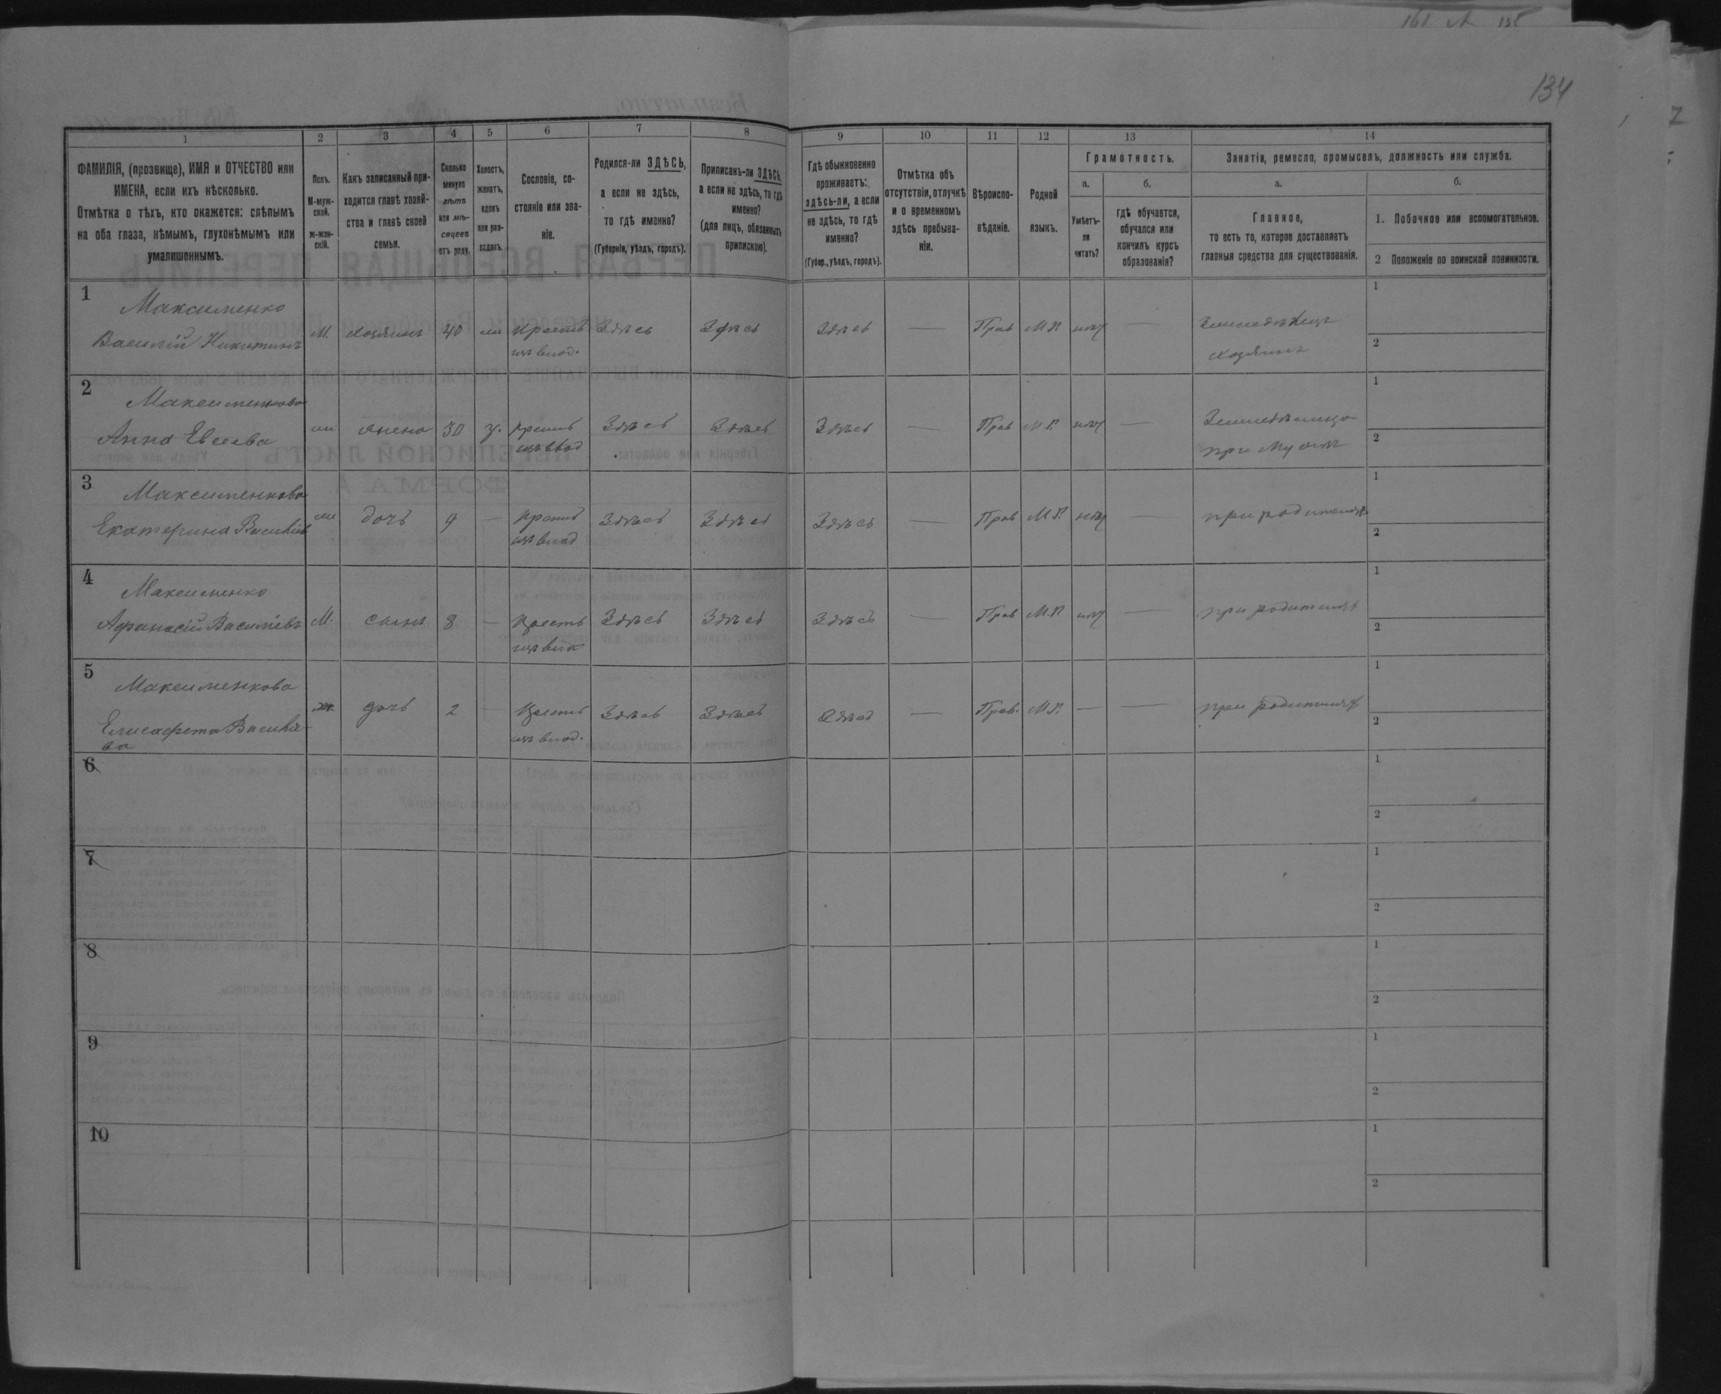 134
1 2 3 4 5 6 7 8 9 10 11 12 13 14
ФАМИЛІЯ, (прозвище), ИМЯ и ОТЧЕСТВО или
ИМЕНА, если ихъ нѣсколько.
Отмѣтка о тѣхъ, кто окажется: слѣпымъ
на оба глаза, нѣмымъ, глухонѣмымъ или
умалишеннымъ.
Полъ.
М-муж-
ской.
ж-жен-
скій.
Какъ записанный при-
ходится главѣ хозяй-
ства и главѣ своей
семьи.
Сколько
минуло
лѣтъ
или мѣ-
сяцевъ
отъ роду.
Холостъ,
женатъ,
вдовъ
или раз-
веденъ.
Сословіе, со-
стояніе или зва-
ніе.
Родился-ли ЗДѢСЬ,
а если не здѣсь,
то гдѣ именно?
(Губернія, уѣздъ, городъ).
Приписанъ-ли ЗДѢСЬ,
а если не здѣсь, то гдѣ
именно?
(для лицъ, обязанныхъ
припискою).
Гдѣ обыкновенно
проживаетъ:
здѣсь-ли, а если
не здѣсь, то гдѣ
именно?
(Губер., уѣздъ, городъ).
Отмѣтка объ
отсутствіи, отлучкѣ
и о временномъ
здѣсь пребыва-
ніи.
Вѣроиспо-
вѣданіе.
Родной
языкъ.
Грамотность.
а.
Умѣетъ-
ли
читать?
б.
Гдѣ обучается,
обучался или
кончилъ курсъ
образованія?
Занятіе, ремесло, промыселъ, должность или служба.
а.
Главное,
то есть то, которое доставляетъ
главныя средства для существованія.
б.
1. Побочное или вспомогательное.
2 Положеніе по воинской повинности.
1 Максименко
Василій Никитинъ М. хозяинъ 40 Крестъ Здѣсь Здѣсь Здѣсь — Прав М.Р. нѣт — хозяинъ
изъ влад.
1
2
2 Максименкова
Анна Евсеева жена 30 з. Крестъ Здѣсь Здѣсь Здѣсь — Прав М.Р. нѣт —
изъ влад при мужѣ
1
2
3 Максименкова
Екатерина Василіев дочь 9 — Крестъ Здѣсь Здѣсь Здѣсь — Прав М.Р. нѣт — при родителях
изъ влад
1
2
4 Максименко
Афанасій Василіевъ М. сынъ 8 — Крестъ Здѣсь Здѣсь Здѣсь — Прав М.Р. нѣт — при родителях
изъ
1
2
5 Максименкова
Елисафета Василіе- ж дочь 2 — Крестъ Здѣсь Здѣсь Здѣсь — Прав. М.Р. — — при родителях
ва изъ влад.
1
2
6
1
2
7
1
2
8
1
2
9
1
2
10
1
2